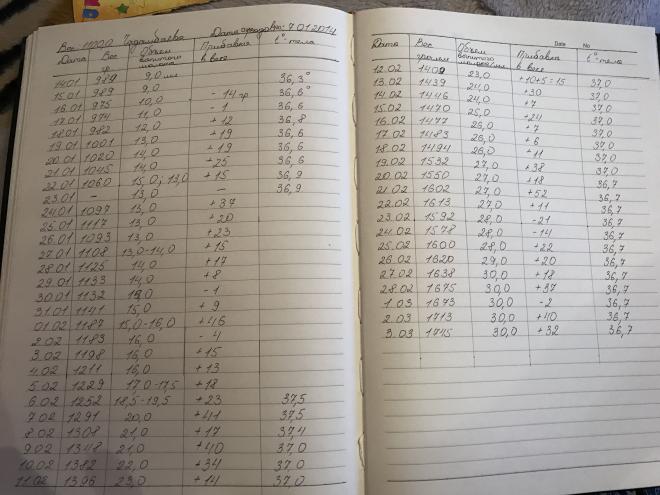 Вес 1100,0 Дата родов: 7.01.2014
Дата Вес гр. Объем выпитого молока Прибавка в весе t° тела
14.01 989 9,0 мл 36,3°
15.01 989 9,0 - 36,6°
16.01 975 10,0 - 14 гр 36,6
17.01 974 11,0 - 1 36,8
18.01 982 12,0 + 12 36,6
19.01 1001 13,0 + 19 36,6
20.01 1020 14,0 + 19 36,6
21.01 1045 14,0 + 25 36,6
22.01 1060 15,0; 13,0 + 15 36,9
23.01 - 13,0 - 36,9
24.01 1097 13,0 + 37
25.01 1117 13,0 + 20
26.01 1093 13,0 + 23
27.01 1108 13,0-14,0 + 15
28.01 1125 14,0 + 17
29.01 1133 14,0 + 8
30.01 1132 - 1
31.01 1141 15,0 + 9
01.02 1187 15,0-16,0 + 46
2.02 1183 16,0 - 4
3.02 1198 16,0 + 15
4.02 1211 16,0 + 13
5.02 1229 17,0-17,5 + 18
6.02 1252 18,5-19,5 + 23 37,5
7.02 1291 20,0 + 41 37,5
8.02 1308 21,0 + 17 37,4
9.02 1348 21,0 + 40 37,0
10.02 1382 22,0 + 34 37,0
11.02 1396 23,0 + 14 37,0
Date No
Дата Вес граммы Объем выпитого молока Прибавка в весе t°-тела
12.02 1409 23,0 +10+5=15 37,0
13.02 1439 24,0 +30 37,0
14.02 1446 24,0 +7 37,0
15.02 1470 25,0 +24 37,0
16.02 1477 26,0 +7 37,0
17.02 1483 26,0 +6 37,0
18.02 1494 26,0 +11 37,0
19.02 1532 27,0 +38 37,0
20.02 1550 27,0 +18 36,7
21.02 1602 27,0 +52 36,7
22.02 1613 27,0 +11 36,7
23.02 1592 28,0 -21 36,7
24.02 1578 28,0 -14 36,7
25.02 1600 28,0 +22 36,7
26.02 1620 29,0 +20 36,7
27.02 1638 30,0 +18 36,7
28.02 1675 30,0 +37 36,7
1.03 1673 30,0 -2 36,7
2.03 1713 30,0 +40 36,7
3.03 1745 30,0 +32 36,7